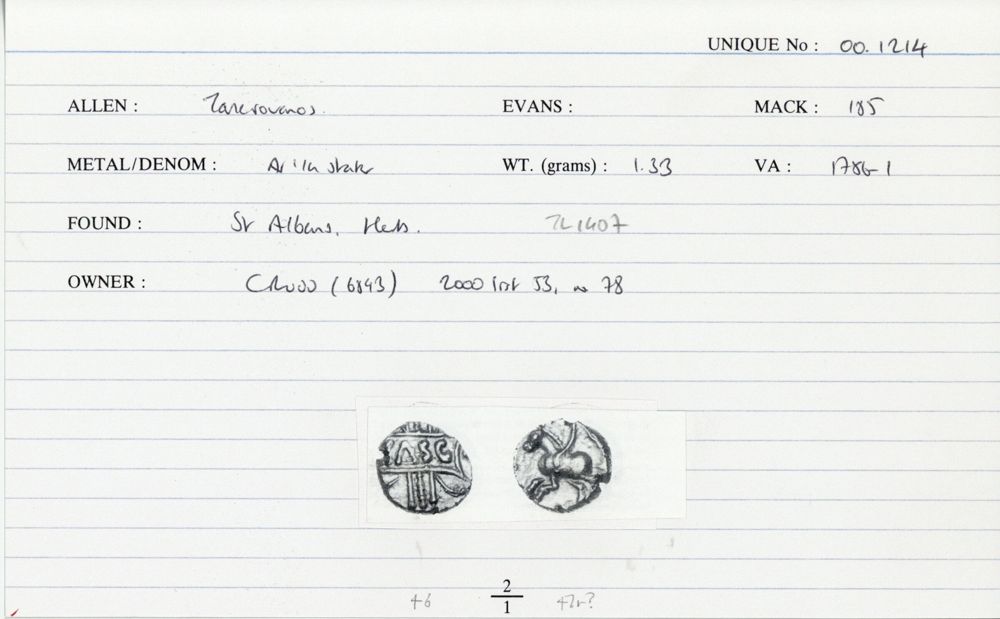 UNIQUE No : 00.1214
ALLEN : Tasciovanos. EVANS : MACK : 185
METAL/DENOM : AV 1/4 stater WT. (grams) : 1.33 VA : 1786-1
FOUND : St Albans, Herts. TL1407
OWNER : CRUDD (6843) 2000 list 53, no 78
TASC
46 2/1 47r?